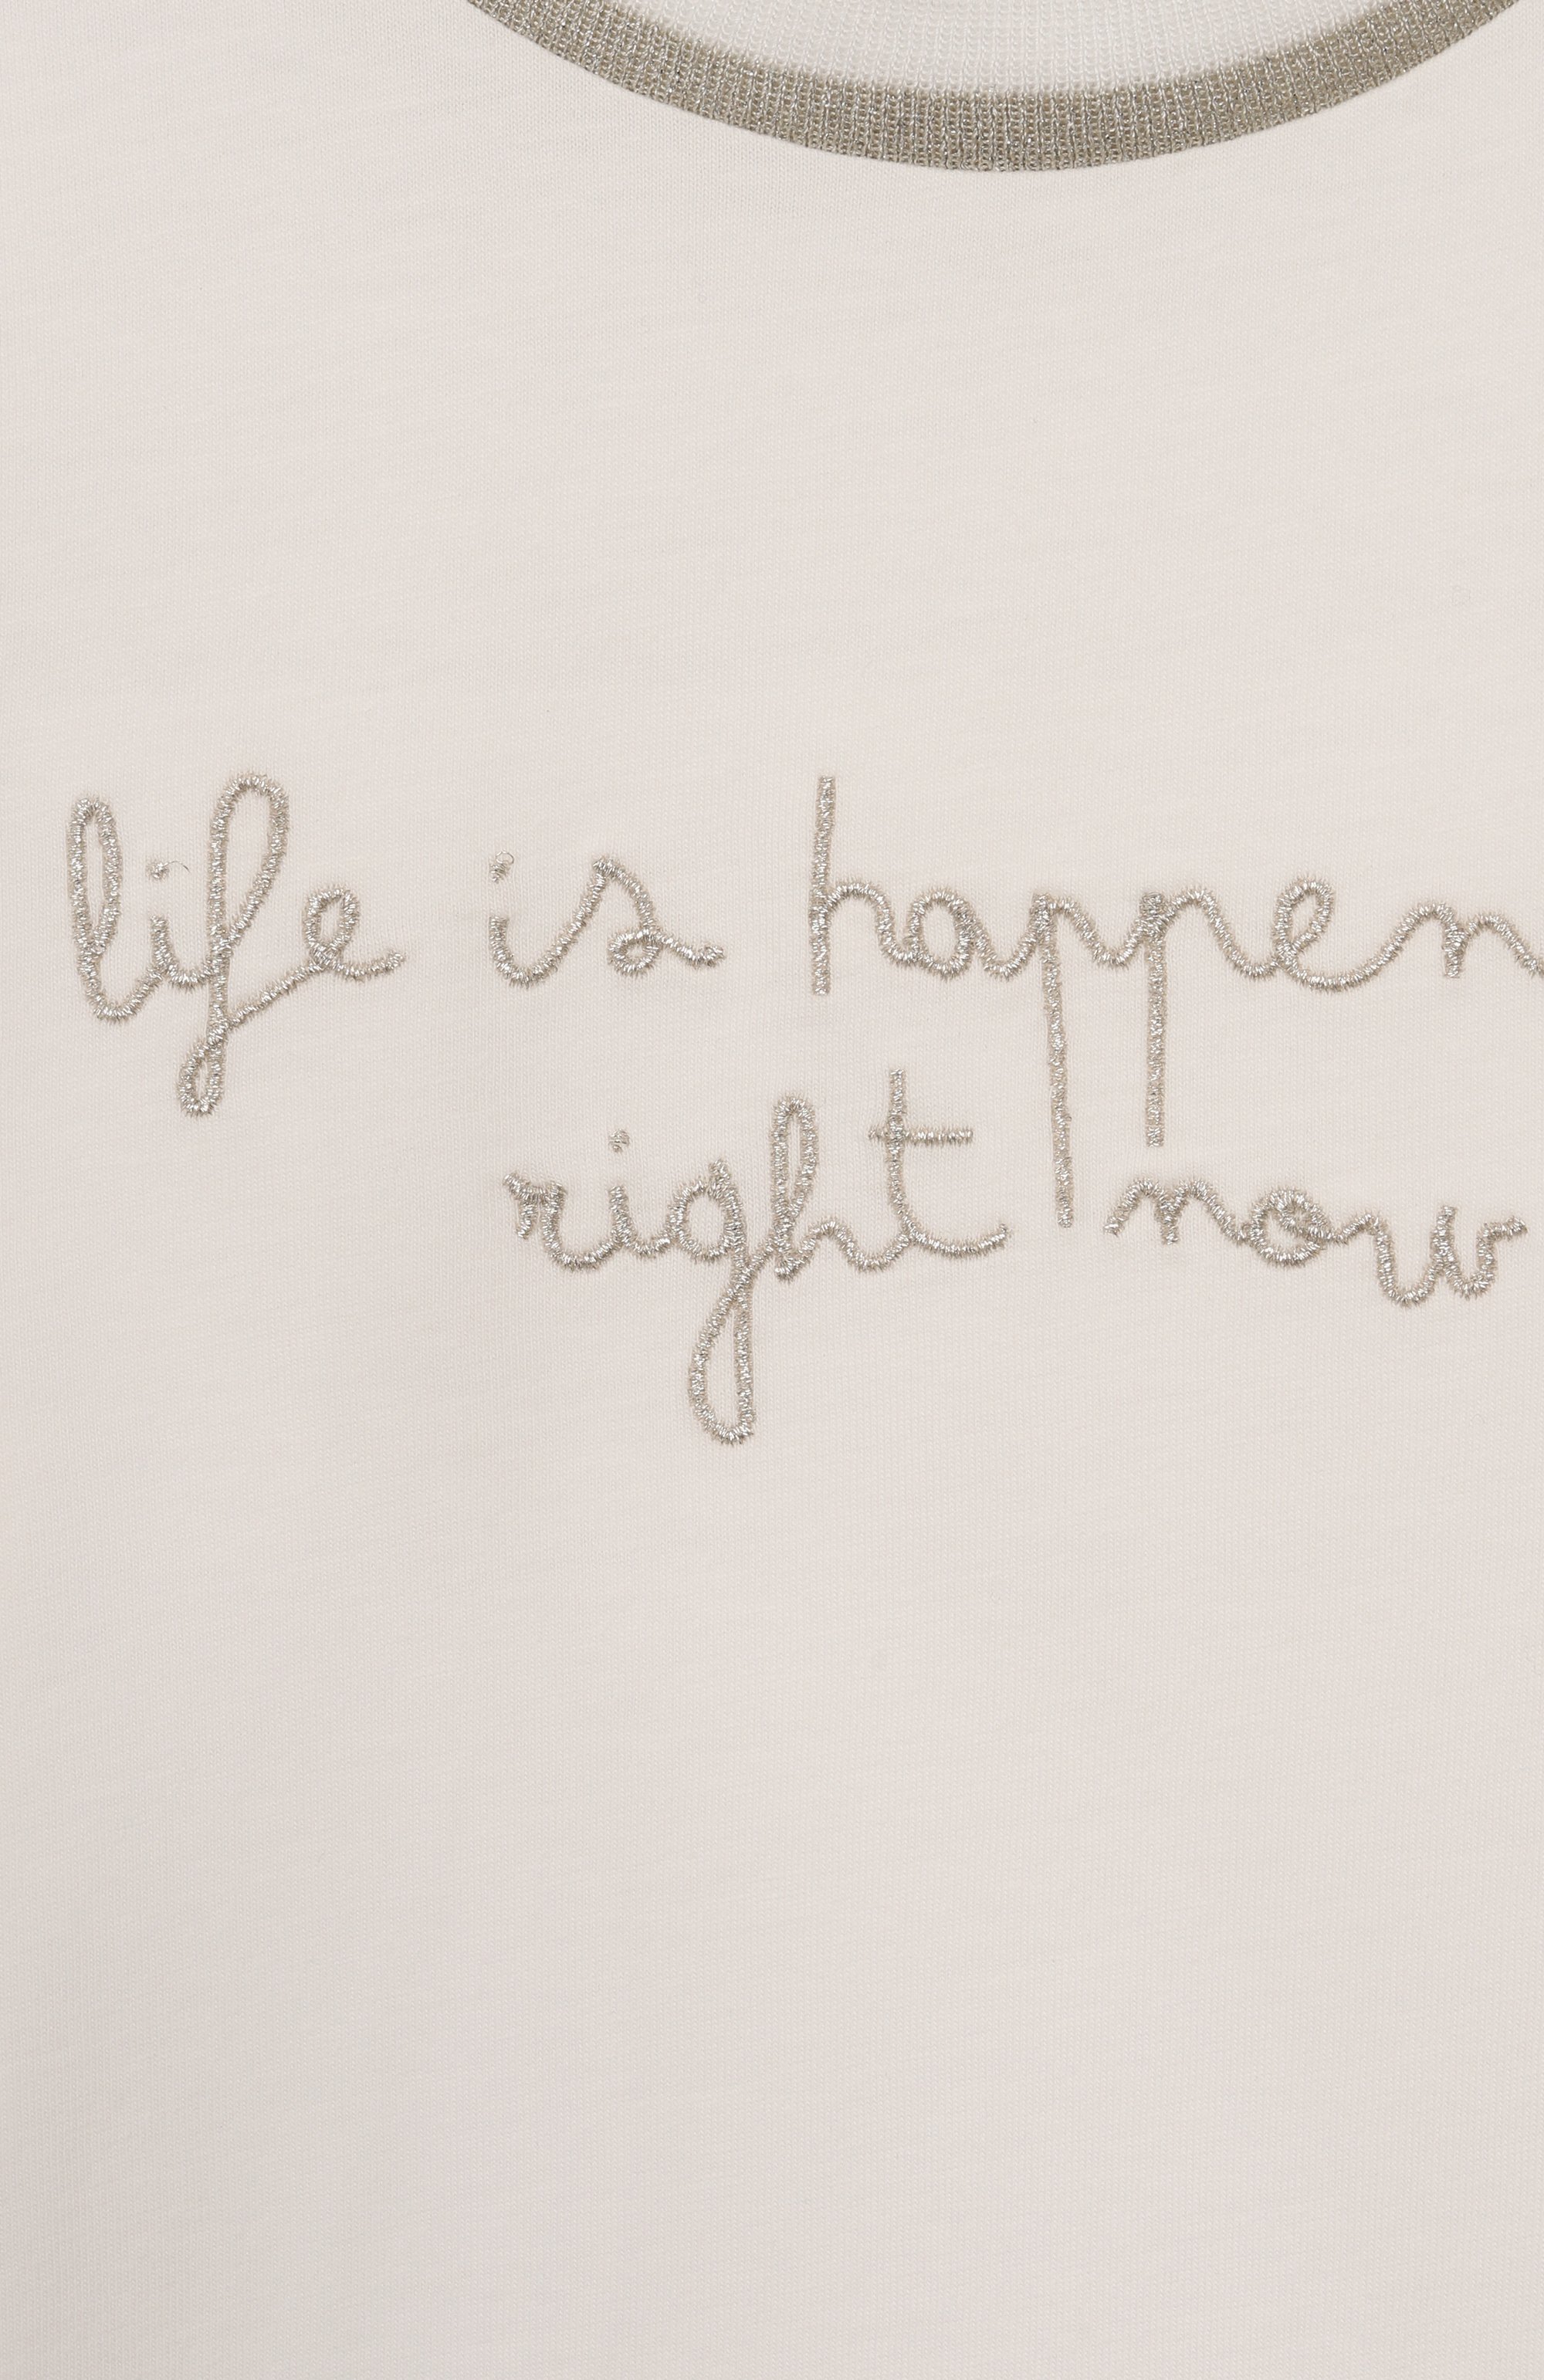 life is happen
right now